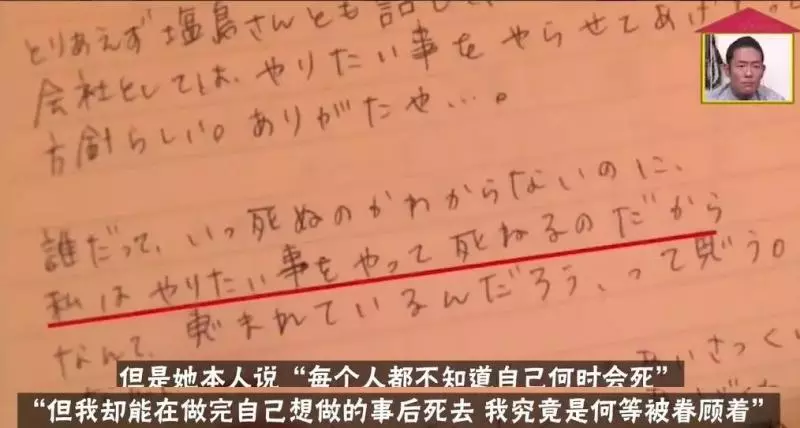 とりあえず塩島さんとも話して、
会社としては、やりたい事をやらせてあげるって
方針らしい。ありがたや…。
誰だって、いつ死ぬのかわからないのに、
私はやりたい事をやって死ねるのだから
なんて、恵まれているんだろう、って思う。
あいさつくい
但是她本人说“每个人都不知道自己何时会死”
“但我却能在做完自己想做的事后死去 我究竟是何等被眷顾着”